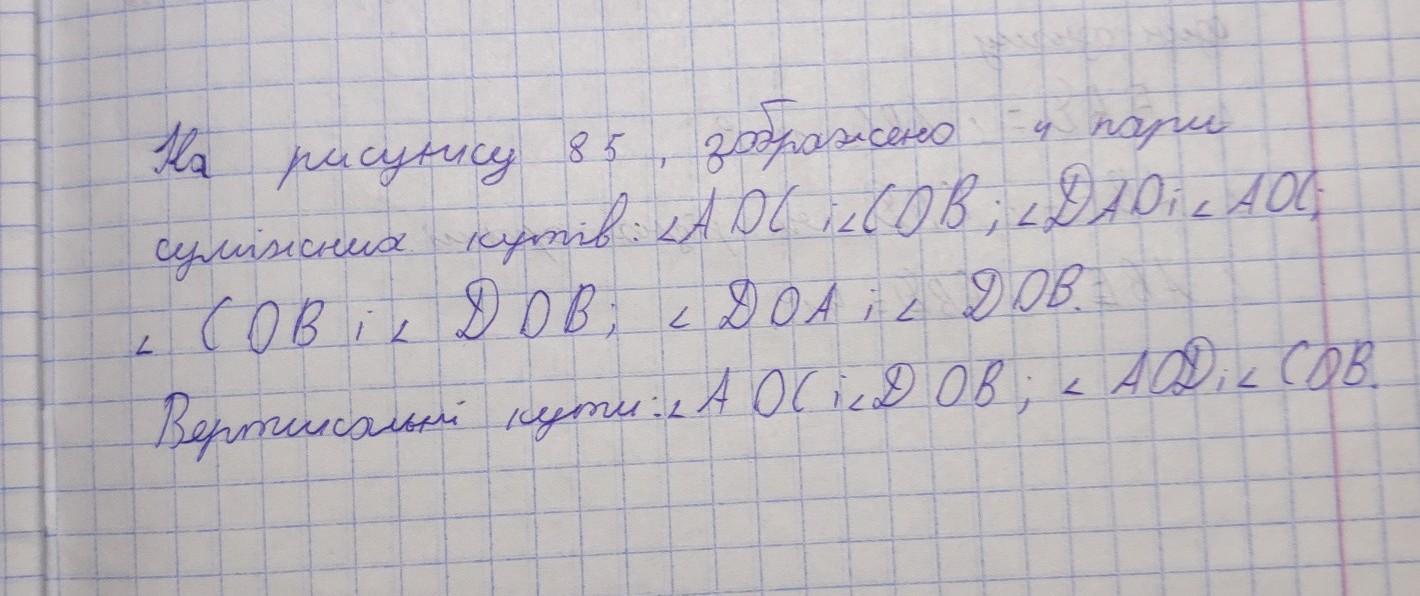 На рисунку 85, зображено 4 пари
суміжних кутів: <AOC i <COB; <DAO i <AOC;
< COB i < DOB; < DOA i < DOB.
Вертикальні кути: <AOC i <DOB; < AOD i < COB.